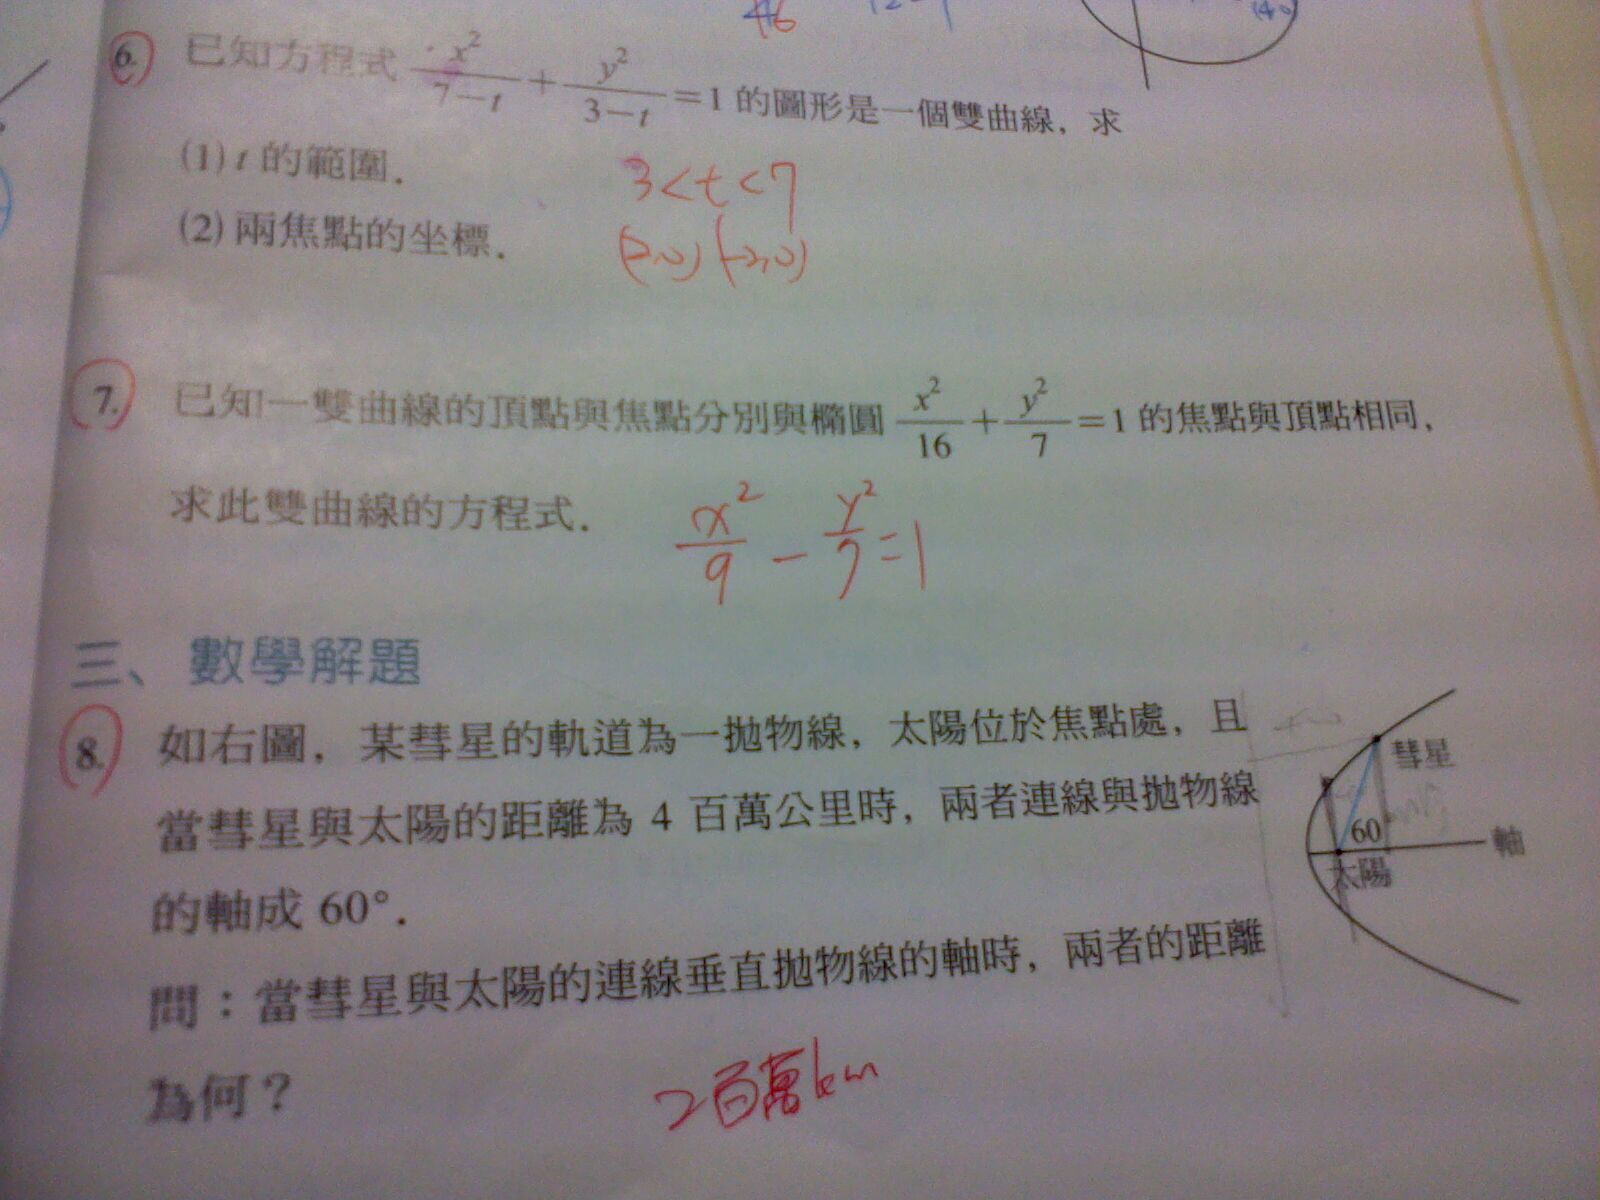 46
6. 已知方程式 x²/(7−t) + y²/(3−t) = 1 的圖形是一個雙曲線，求
(1) t 的範圍．
3<t<7
(2) 兩焦點的坐標．
(2,0) (-2,0)
7. 已知一雙曲線的頂點與焦點分別與橢圓 x²/16 + y²/7 = 1 的焦點與頂點相同，
求此雙曲線的方程式．
x²/9 − y²/7 = 1
三、數學解題
8. 如右圖，某彗星的軌道為一拋物線，太陽位於焦點處，且
當彗星與太陽的距離為 4 百萬公里時，兩者連線與拋物線
的軸成 60°．
問：當彗星與太陽的連線垂直拋物線的軸時，兩者的距離
為何？
2百萬km
彗星
60
軸
太陽